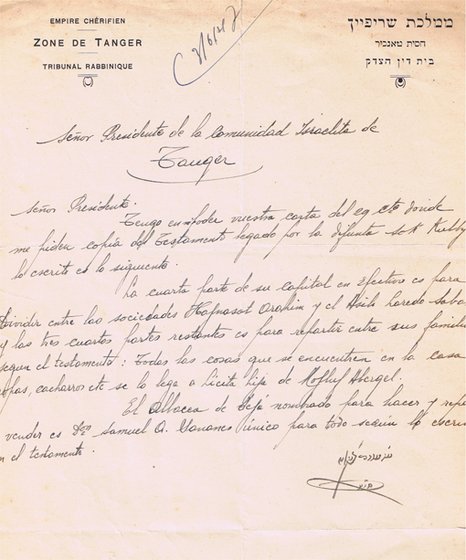 EMPIRE CHÉRIFIEN
ZONE DE TANGER
TRIBUNAL RABBINIQUE
ממלכת שריפייך
בית דין הצדק
Señor Presidente de la Comunidad Israelita de
Tanger
Señor Presidente.
Tengo en mi poder vuestra carta del 29 cte donde
me piden copia del Testamento legado por la difunta
lo escrito es lo siguiente.
La cuarta parte de su capital en efectivo es para
dividir entre las sociedades Hajnasat Orahim y el
y las tres cuartas partes restantes es para repartir entre sus famili
segun el testamento: Todas las cosas que se encuentren en la casa
ropas, cacharros etc se lo lega a licita hija de Abergel.
El Albacea de nombrado para hacer y
vender es Samuel A. único para todo según lo escri
en el testamento.